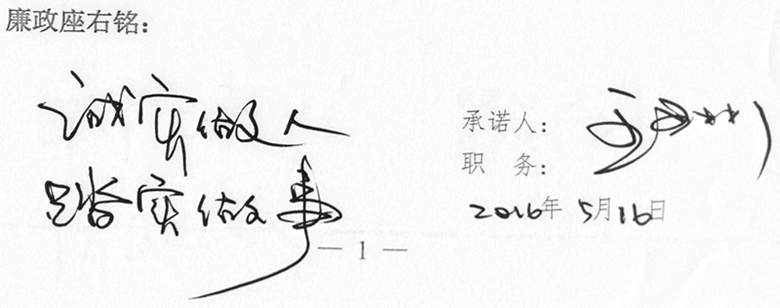 廉政座右铭：
诚实做人
踏实做事
承诺人：
职 务：
2016年 5月16日
— 1 —